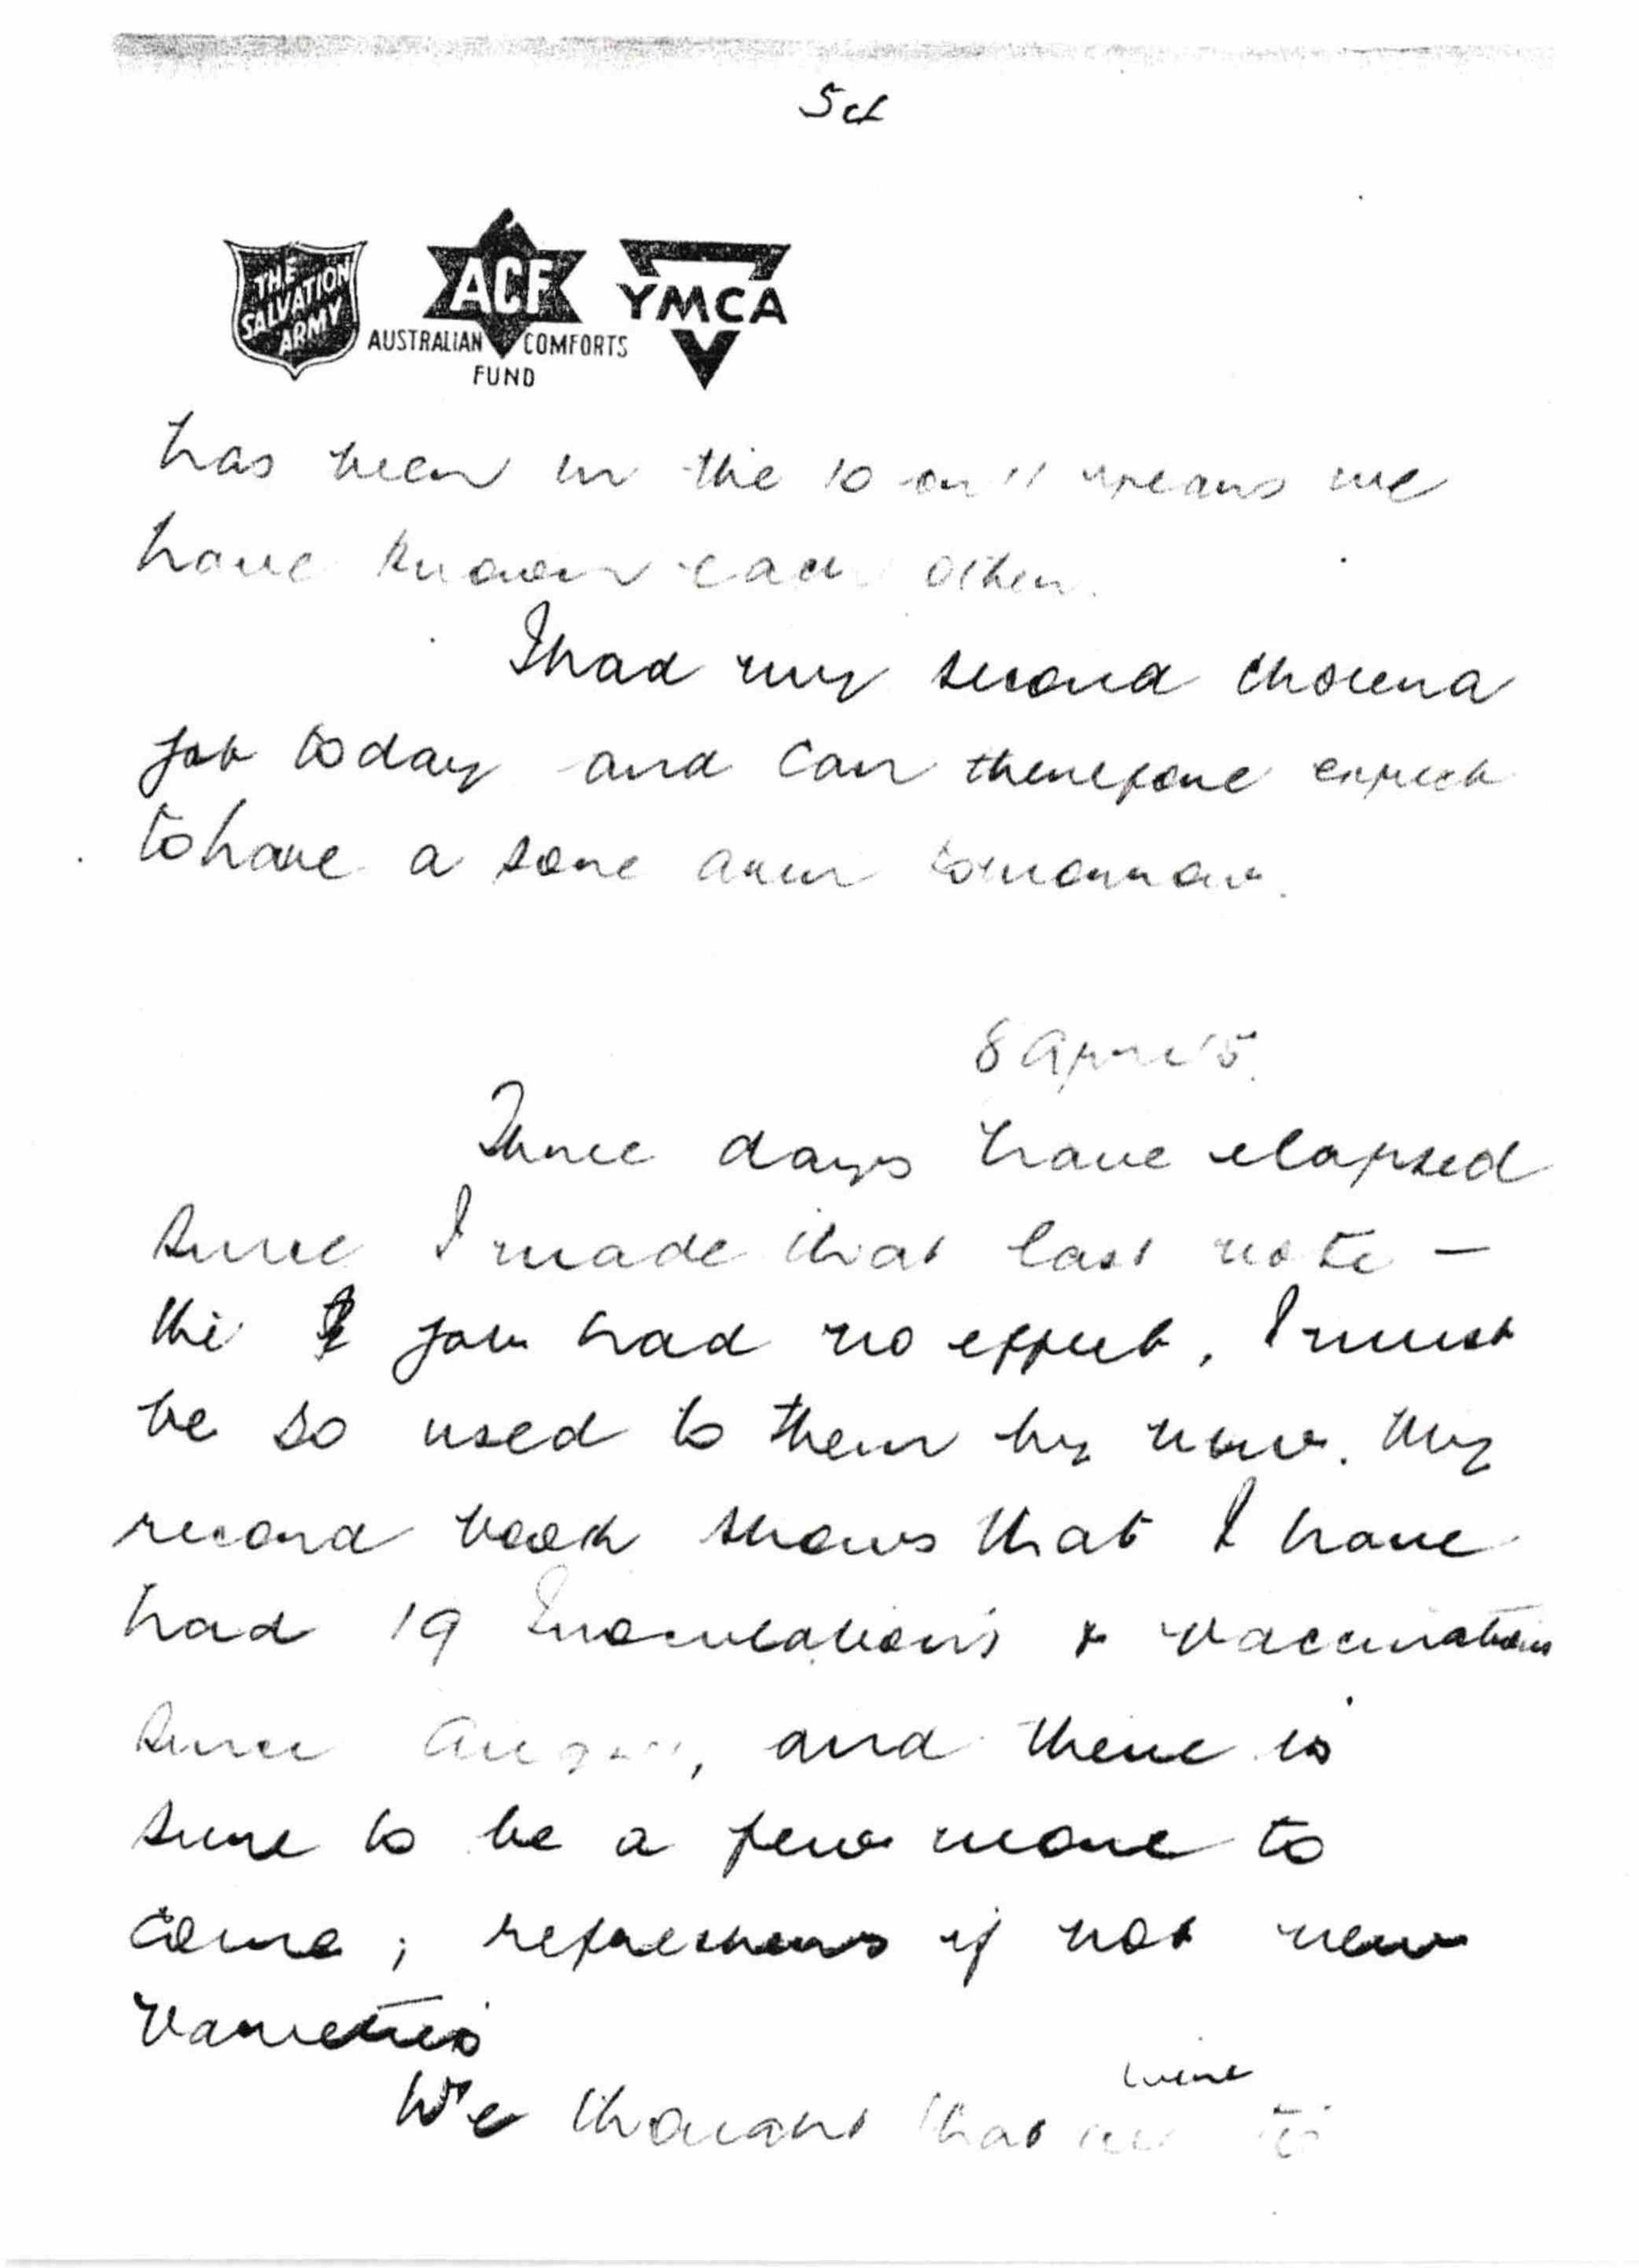 THE SALVATION ARMY
ACF
AUSTRALIAN COMFORTS
FUND
YMCA
has been in the 10 or 11 years we
have known each other.
I had my second cholera
jab today and can therefore expect
to have a sore arm tomorrow.
8 April
Three days have elapsed
since I made that last note –
the jab had no effect, I must
be so used to them by now. My
record book shows that I have
had 19 Inoculations & vaccinations
since August, and there is
sure to be a few more to
come; refreshers if not new
varieties
We thought that we were to